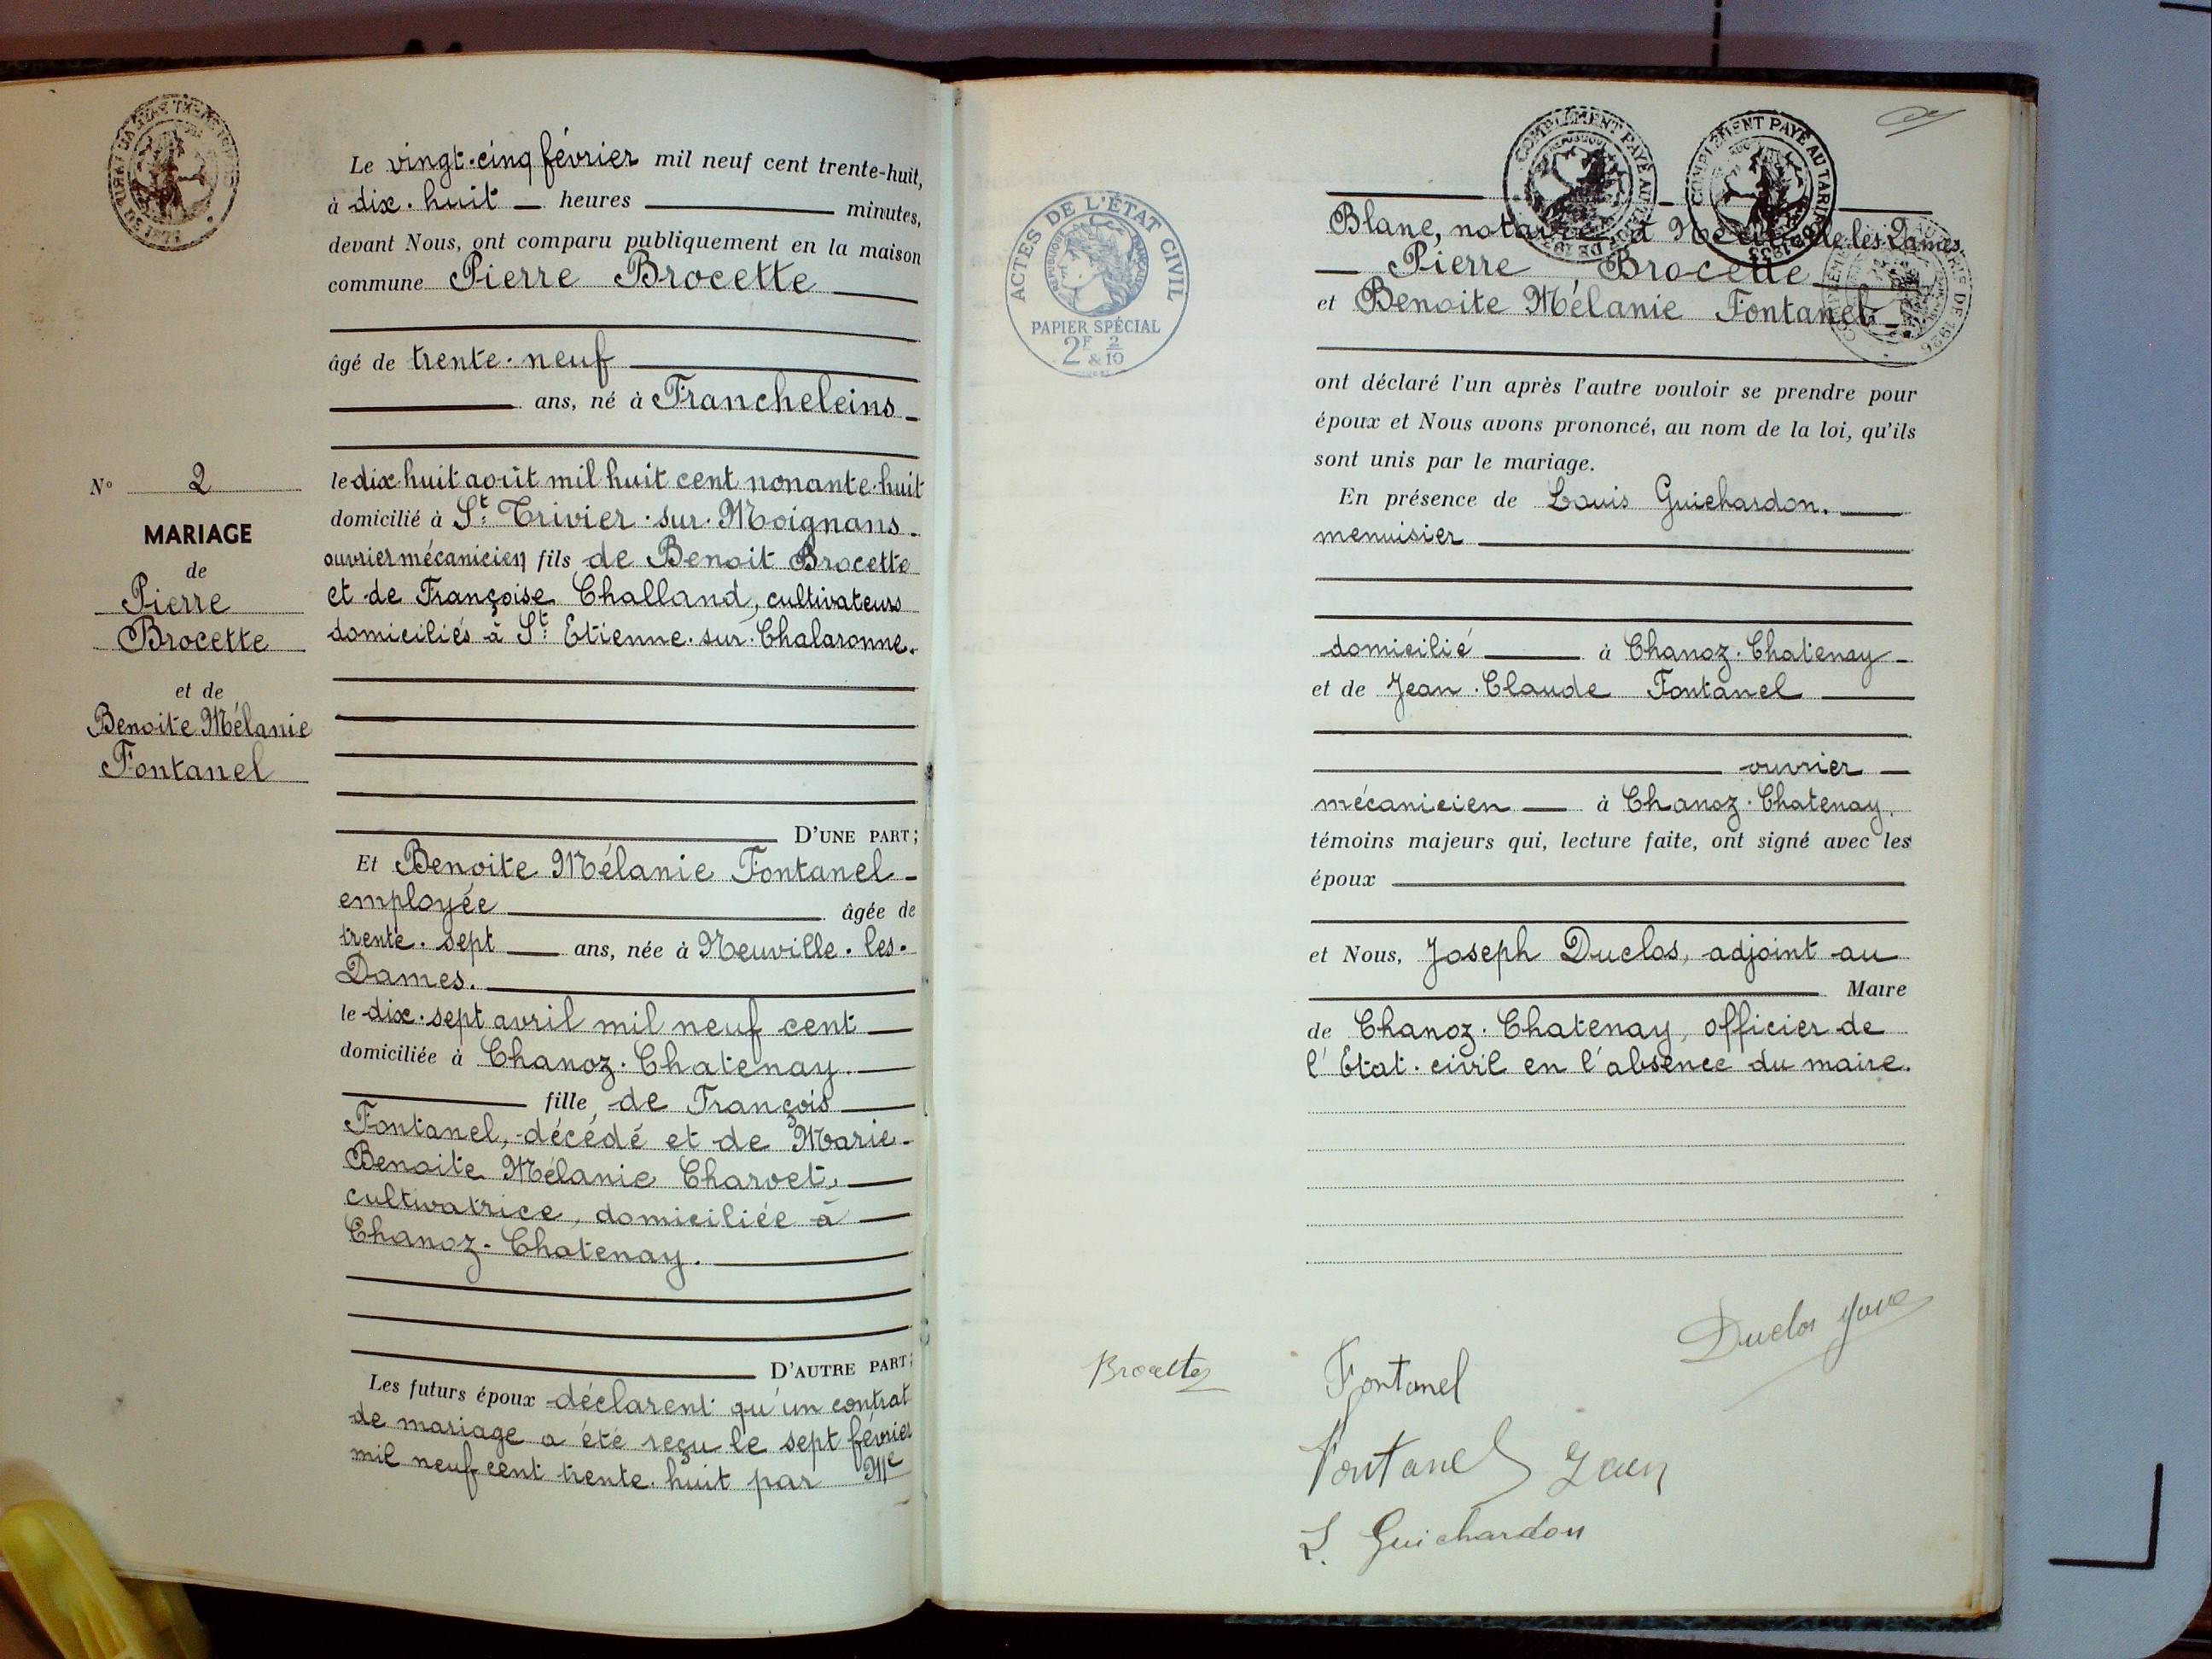 Le vingt-cinq février mil neuf cent trente-huit,
à dix-huit heures minutes,
devant Nous, ont comparu publiquement en la maison
commune Pierre Brocette
âgé de trente-neuf
ans, né à Francheleins
le dix-huit août mil huit cent nonante-huit
domicilié à St Trivier-sur-Moignans
ouvrier mécanicien fils de Benoit Brocette
et de Françoise Challand, cultivateurs
domiciliés à St Etienne-sur-Chalaronne.
D'UNE PART;
N° 2
MARIAGE
de
Pierre
Brocette
et de
Benoite Mélanie
Fontanel
Et Benoite Mélanie Fontanel
employée âgée de
trente-sept ans, née à Neuville-les-
Dames.
le dix-sept avril mil neuf cent
domiciliée à Chanoz-Chatenay.
fille de François
Fontanel, décédé et de Marie-
Benoite Mélanie Charvet,
cultivatrice, domiciliée à
Chanoz-Chatenay.
D'AUTRE PART;
Les futurs époux déclarent qu'un contrat
de mariage a été reçu le sept février
mil neuf cent trente-huit par Me
COMPLÉMENT PAYÉ AU TARIF DE
COMPLÉMENT PAYÉ AU TARIF
ACTES DE L'ÉTAT CIVIL
RÉPUBLIQUE FRANÇAISE
PAPIER SPÉCIAL
2F 2/10
&
Blanc, notaire à Neuville-les-Dames
Pierre Brocette
et Benoite Mélanie Fontanel
ont déclaré l'un après l'autre vouloir se prendre pour
époux et Nous avons prononcé, au nom de la loi, qu'ils
sont unis par le mariage.
En présence de Louis Guichardon,
menuisier
domicilié à Chanoz-Chatenay
et de Jean-Claude Fontanel
ouvrier
mécanicien à Chanoz-Chatenay.
témoins majeurs qui, lecture faite, ont signé avec les
époux
et Nous, Joseph Duclos, adjoint au
Maire
de Chanoz-Chatenay, officier de
l'Etat-civil en l'absence du maire.
Duclos
Brocette
Fontanel
Fontanel Jean
L. Guichardon